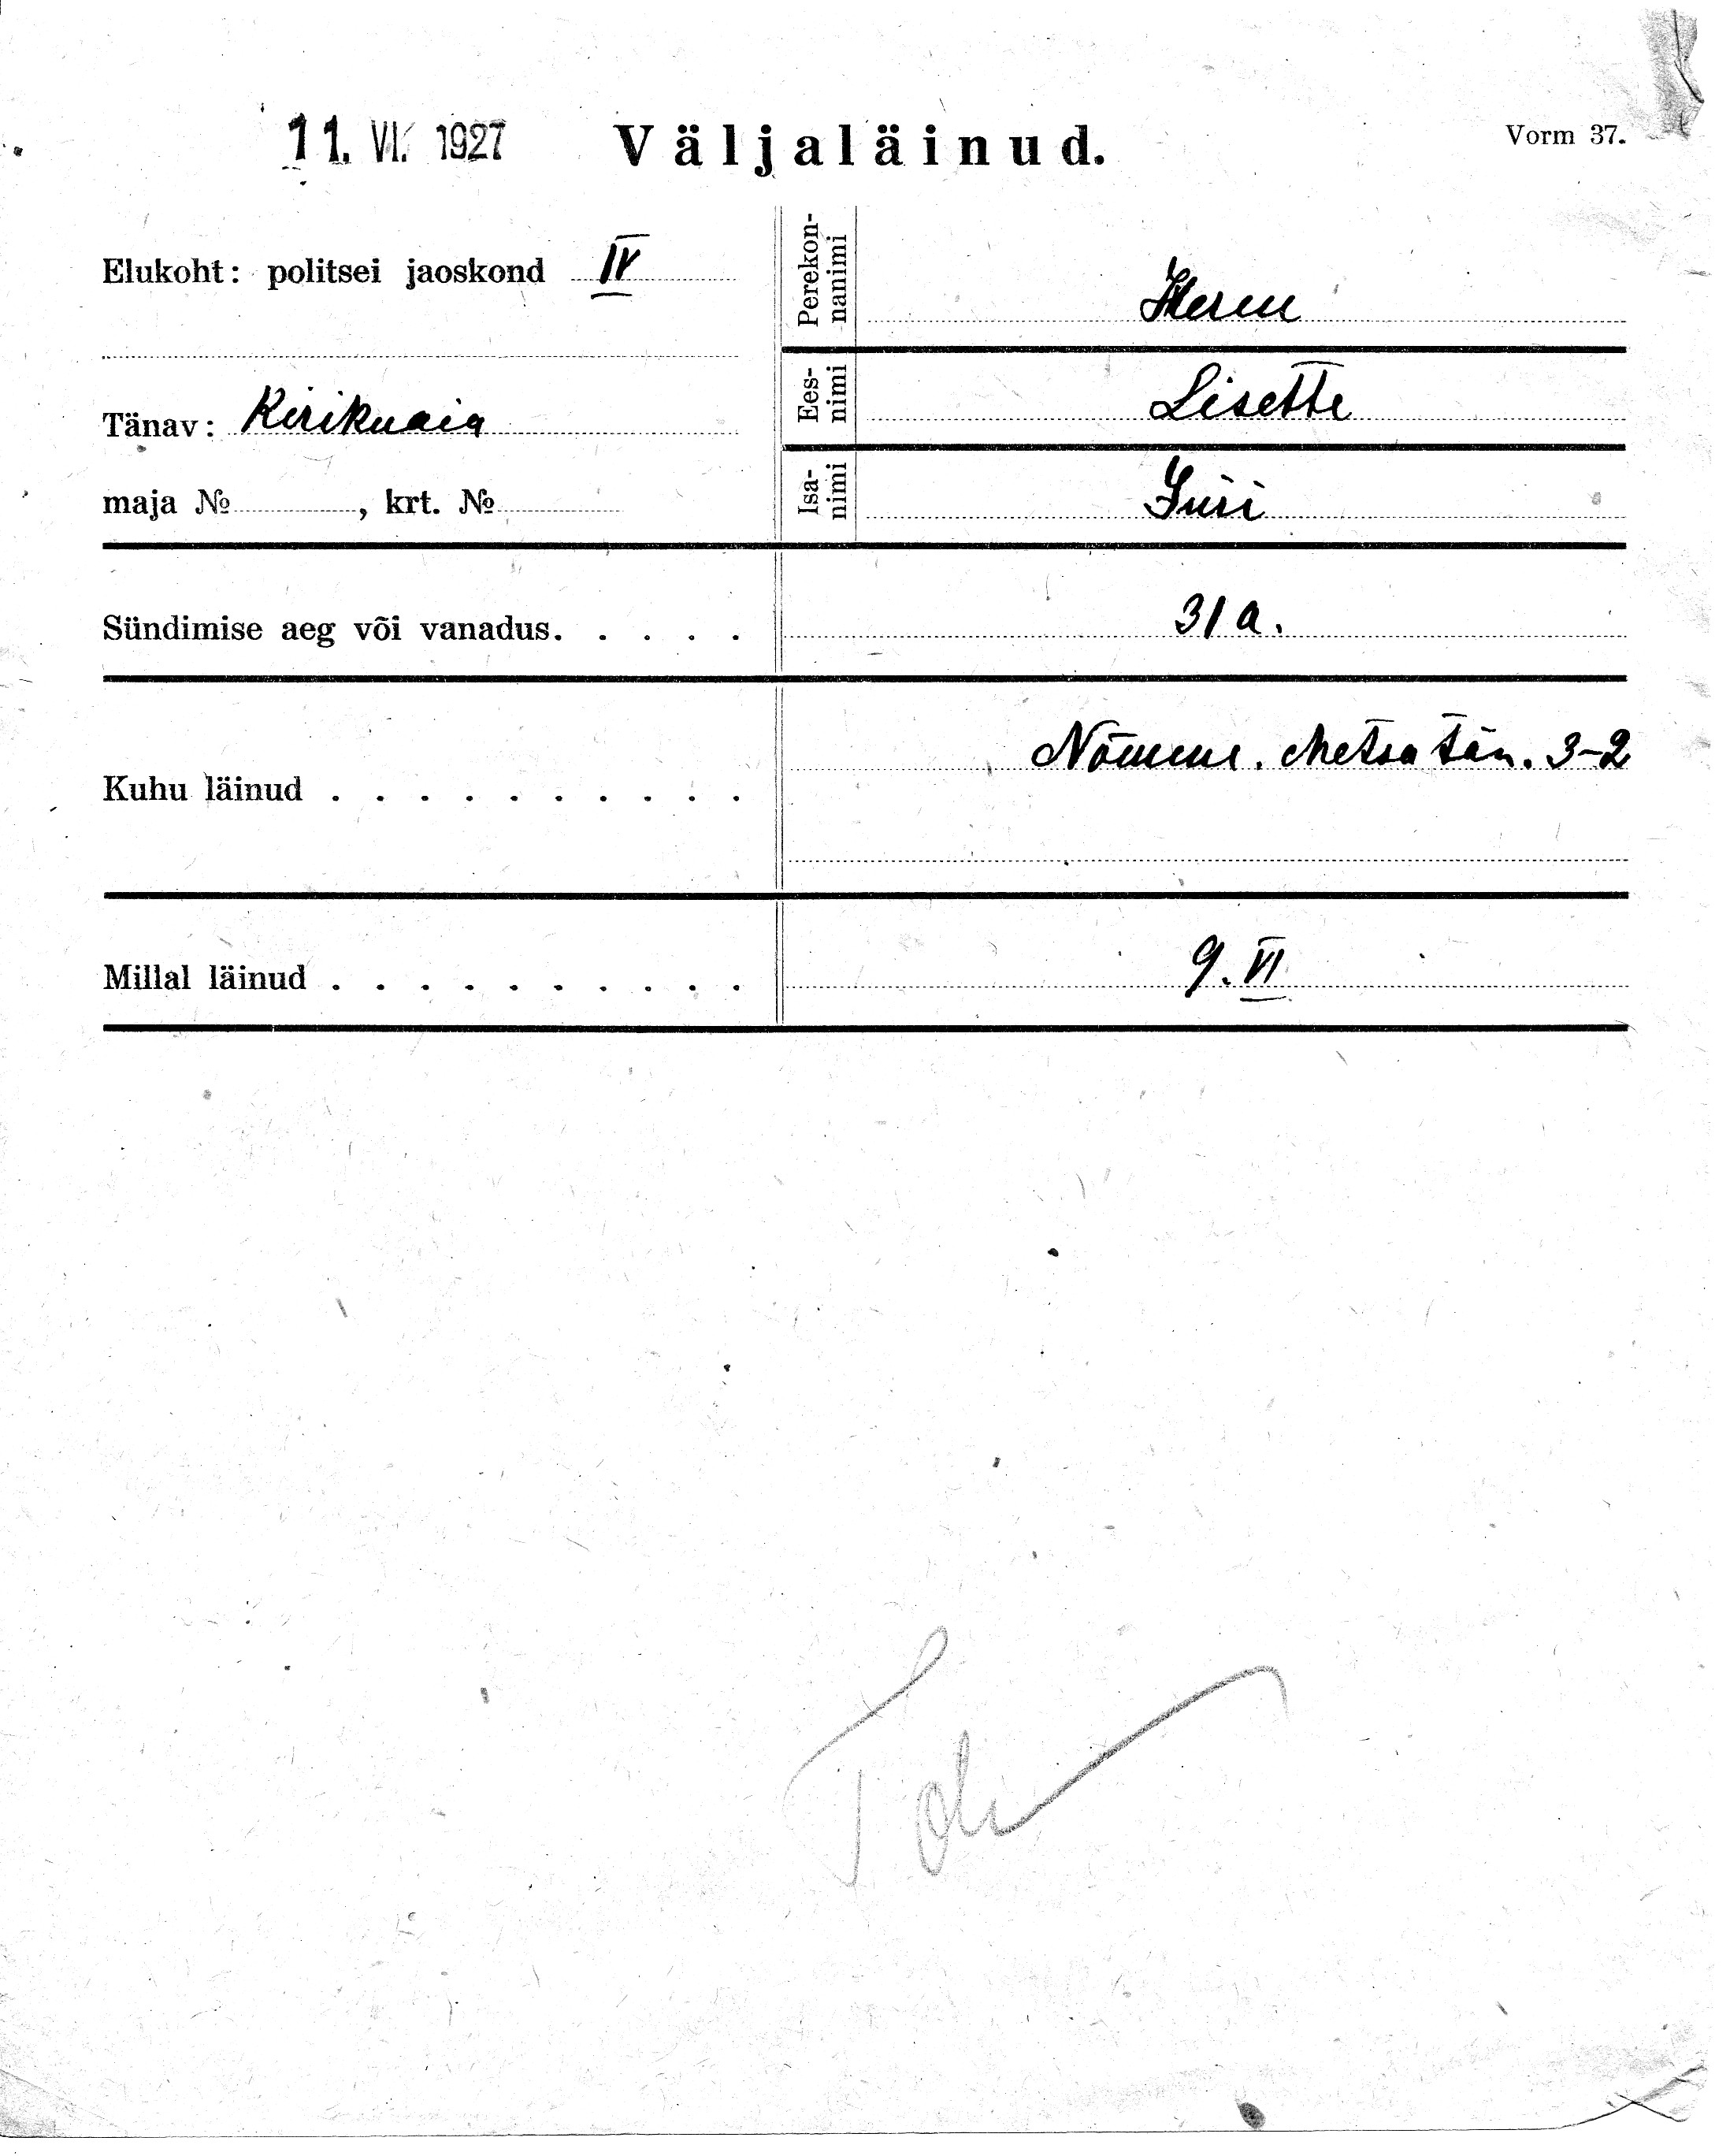 11. VI. 1927 Väljaläinud. Vorm 37.
Elukoht: politsei jaoskond IV
Perekonnanimi
Tänav: Kirikuaia
Eesnimi Lisette
maja № , krt. №
Isanimi Jüri
Sündimise aeg või vanadus. . . . . 31 a.
Kuhu läinud . . . . . . . . . . Nõmme. Metsa tän. 3-2
Millal läinud . . . . . . . . . . 9. VI